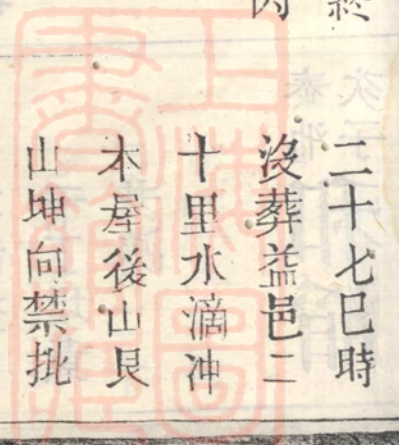 終
二十七巳時
沒葬益邑二
十里水滴冲
本屋後山艮
山坤向禁批